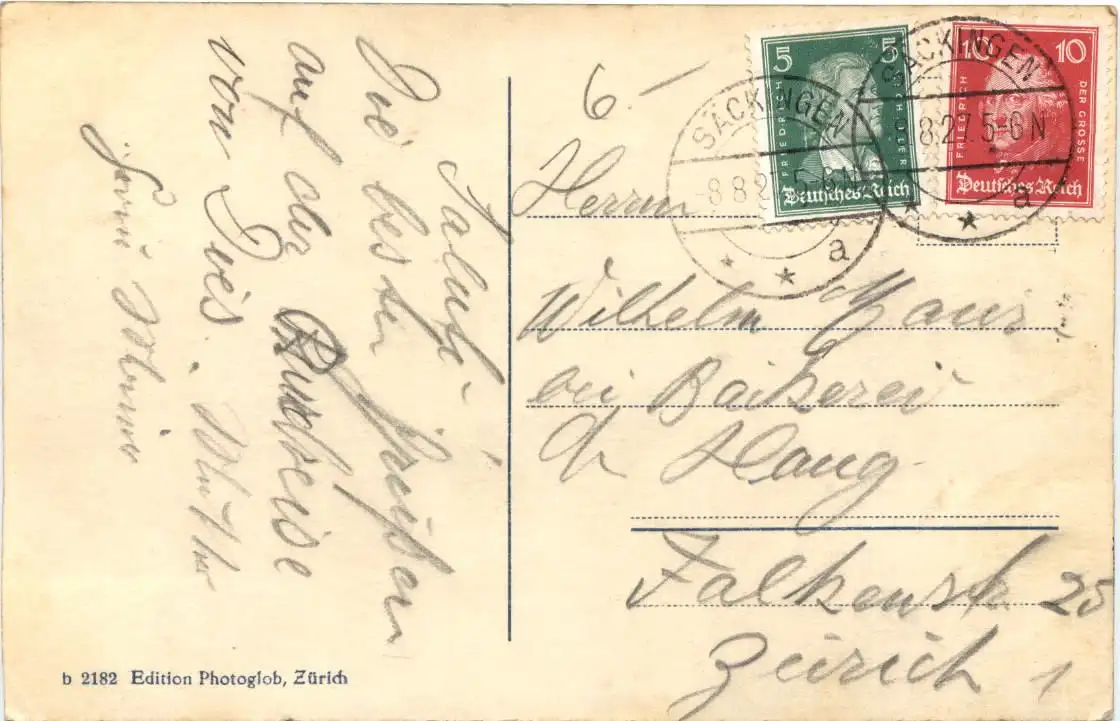 Salut!
Die besten Grüssen
auf der Rundreise
von Deis. Mutter
6.-
Herrn
Wilhelm
bei Bäckerei
Haug
Falkenstr. 25
Zürich 1
5
FRIEDRICH SCHILLER
Deutsches Reich
10
10
FRIEDRICH DER GROSSE
Deutsches Reich
SÄCKINGEN
-8.8.2
a
SÄCKINGEN
8.8.27.5-6N
a
b 2182 Edition Photoglob, Zürich